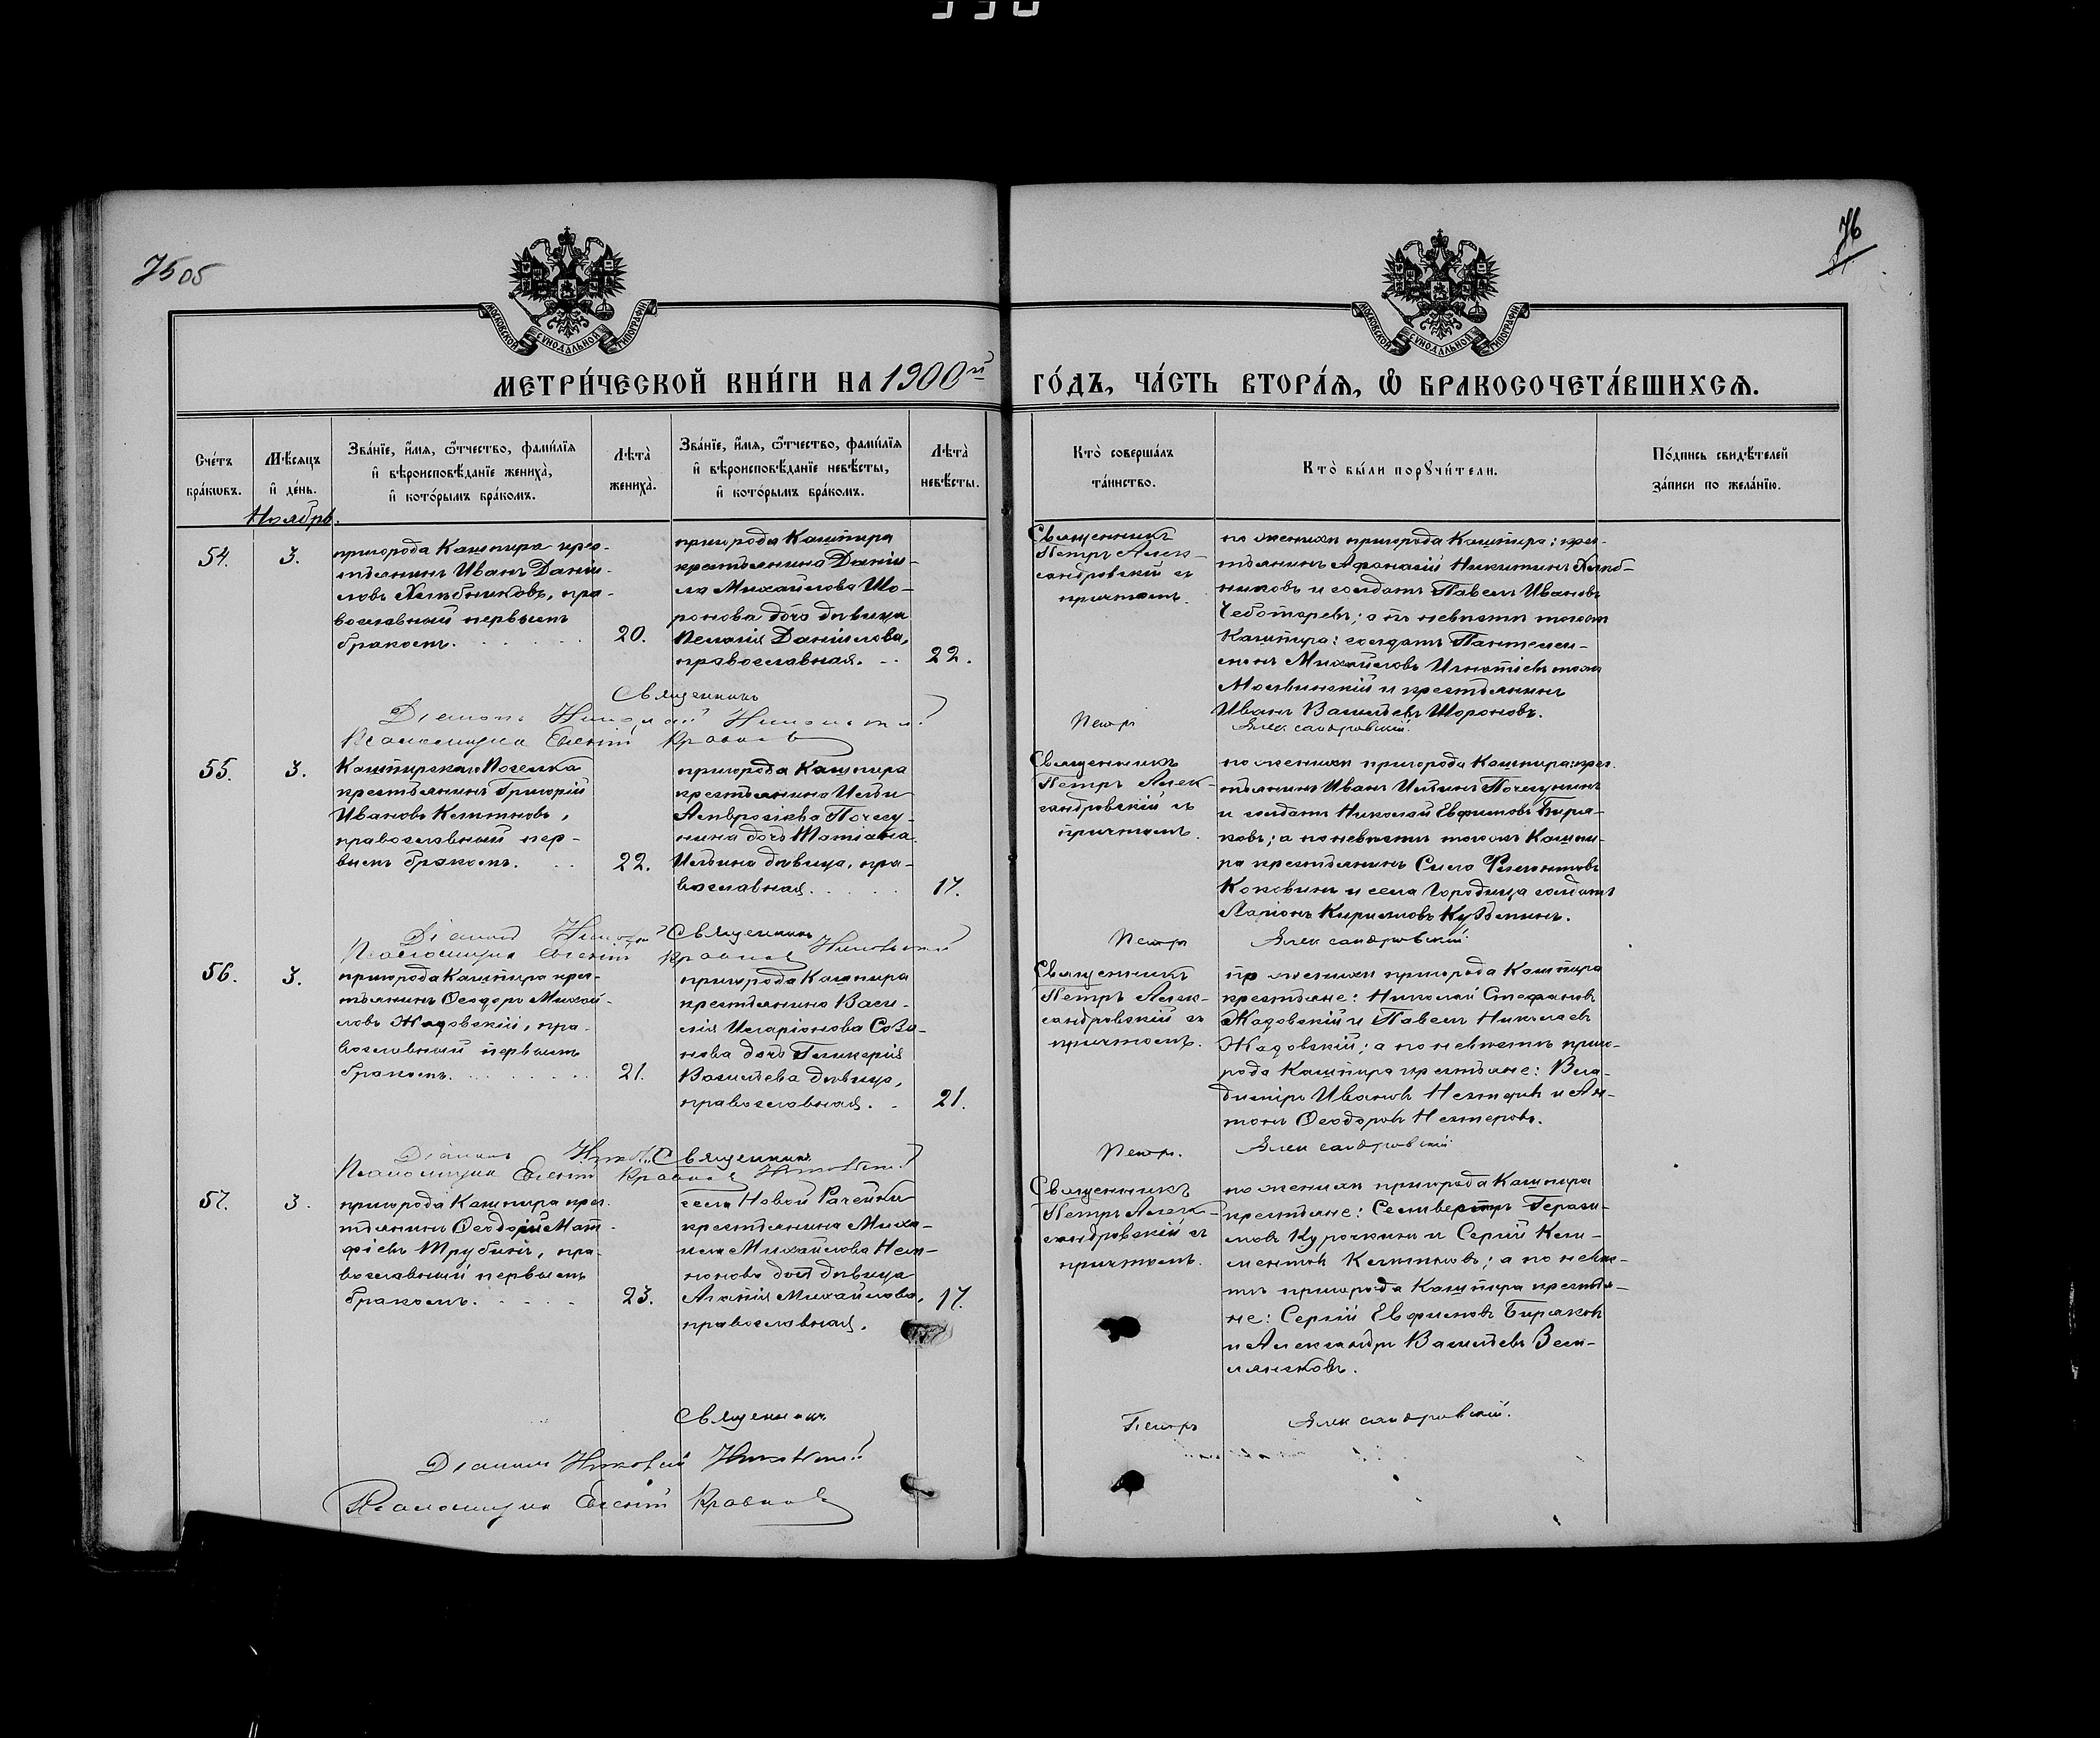 75об
76
МОСКОВСКОЙ СѴНОДАЛЬНОЙ ТИПОГРАФІИ
МОСКОВСКОЙ СѴНОДАЛЬНОЙ ТИПОГРАФІИ
МЕТРИ́ЧЕСКОЙ КНИ́ГИ НА 1900й ГО́ДЪ, ЧА́СТЬ ВТОРА́Я, Ѽ БРАКОСОЧЕТА́ВШИХСЯ.
Сче́тъ
бра́кѡвъ.
Мѣ́сяцъ
и҆ де́нь.
Зва́нїе, и҆́мя, ѻ҆́тчество, фами́лїя
и҆ вѣроисповѣ́данїе жениха̀,
и҆ кото́рымъ бра́комъ.
Лѣта̀
жениха̀.
Зва́нїе, и҆́мя, ѻ҆́тчество, фами́лїя
и҆ вѣроисповѣ́данїе невѣ́сты,
и҆ кото́рымъ бра́комъ.
Лѣта̀
невѣ́сты.
Кто̀ соверша́лъ
та́инство.
Кто̀ бы́ли порꙋчи́тели.
По́дпись свидѣ́телей
за́писи по жела́нїю.
Ноябрь.
54.
3.
пригорода Кашпира крес-
тьянинъ Иванъ Даніи-
ловъ Хлѣбниковъ, пра-
вославный первымъ
бракомъ.
20.
пригорода Кашпира
крестьянина Даніи-
ла Михайлова Шо-
ронова дочь дѣвица
Пелагія Даніилова,
православная.
22.
Священникъ
Петръ Алек-
сандровскій съ
причтомъ.
по женихѣ пригорода Кашпира: крес-
тьянинъ Афанасій Никитинъ Хлѣб-
никовъ и солдатъ Павелъ Ивановъ
Чеботаревъ; а по невѣстѣ того же
Кашпира: солдатъ Пантелеи-
монъ Михайловъ Игнатіевъ тожъ
и крестьянинъ
Иванъ Васильевъ Шороновъ.
Священникъ
Петръ
Александровскій.
Діаконъ Николай
Псаломщикъ Евгеній
55.
3.
Кашпирскаго Поселка
крестьянинъ Григорій
Ивановъ Келинъ,
православный пер-
вымъ бракомъ.
22.
пригорода Кашпира
крестьянина Ильи
Амвросіева Почечу-
нина дочь Татіана
Ильина дѣвица, пра-
вославная.
17.
Священникъ
Петръ Алек-
сандровскій съ
причтомъ.
по женихѣ пригорода Кашпира: крес-
тьянинъ Иванъ Ильинъ Почечунинъ
и солдатъ Николай Евфимовъ Биря-
ковъ; а по невѣстѣ того же Кашпи-
ра крестьянинъ Сила Филиповъ
Коковинъ и села Городища солдатъ
Ларіонъ Кирилловъ Кузьминъ.
Священникъ
Петръ
Александровскій.
Діаконъ
Псаломщикъ Евгеній
56.
3.
пригорода Кашпира крес-
тьянинъ Ѳеодоръ Михай-
ловъ Жадовскій, пра-
вославный первымъ
бракомъ.
21.
пригорода Кашпира
крестьянина Васи-
лія Иларіонова Созо-
нова дочь Гликерія
Васильева дѣвица,
православная.
21.
Священникъ
Петръ Алек-
сандровскій съ
причтомъ.
по женихѣ пригорода Кашпира
крестьяне: Николай Стефановъ
Жадовскій и Павелъ Николаевъ
Жадовскій; а по невѣстѣ приго-
рода Кашпира крестьяне: Вла-
димиръ Ивановъ Нестеровъ и Ан-
тонъ Ѳеодоровъ Нестеровъ.
Священникъ
Петръ.
Александровскій.
Діаконъ
Псаломщикъ Евгеній
57.
3.
пригорода Кашпира крес-
тьянинъ Ѳеодоръ Мат-
фіевъ Трубинъ, пра-
вославный первымъ
бракомъ.
23.
села Новой Рачейки
крестьянина Миха-
ила Михайлова Нем-
нонова дочь дѣвица
Агаѳія Михайлова,
православная.
17.
Священникъ
Петръ Алек-
сандровскій съ
причтомъ.
по женихѣ пригорода Кашпира
крестьяне: Селиверстръ Гераси-
мовъ Курочкинъ и Сергій Кли-
ментовъ; а по невѣс-
тѣ пригорода Кашпира крестья-
не: Сергій Евфимовъ Биряковъ
и Александръ Васильевъ Зем-
лянсковъ.
Священникъ
Петръ
Александровскій.
Діаконъ Николай
Псаломщикъ Евгеній